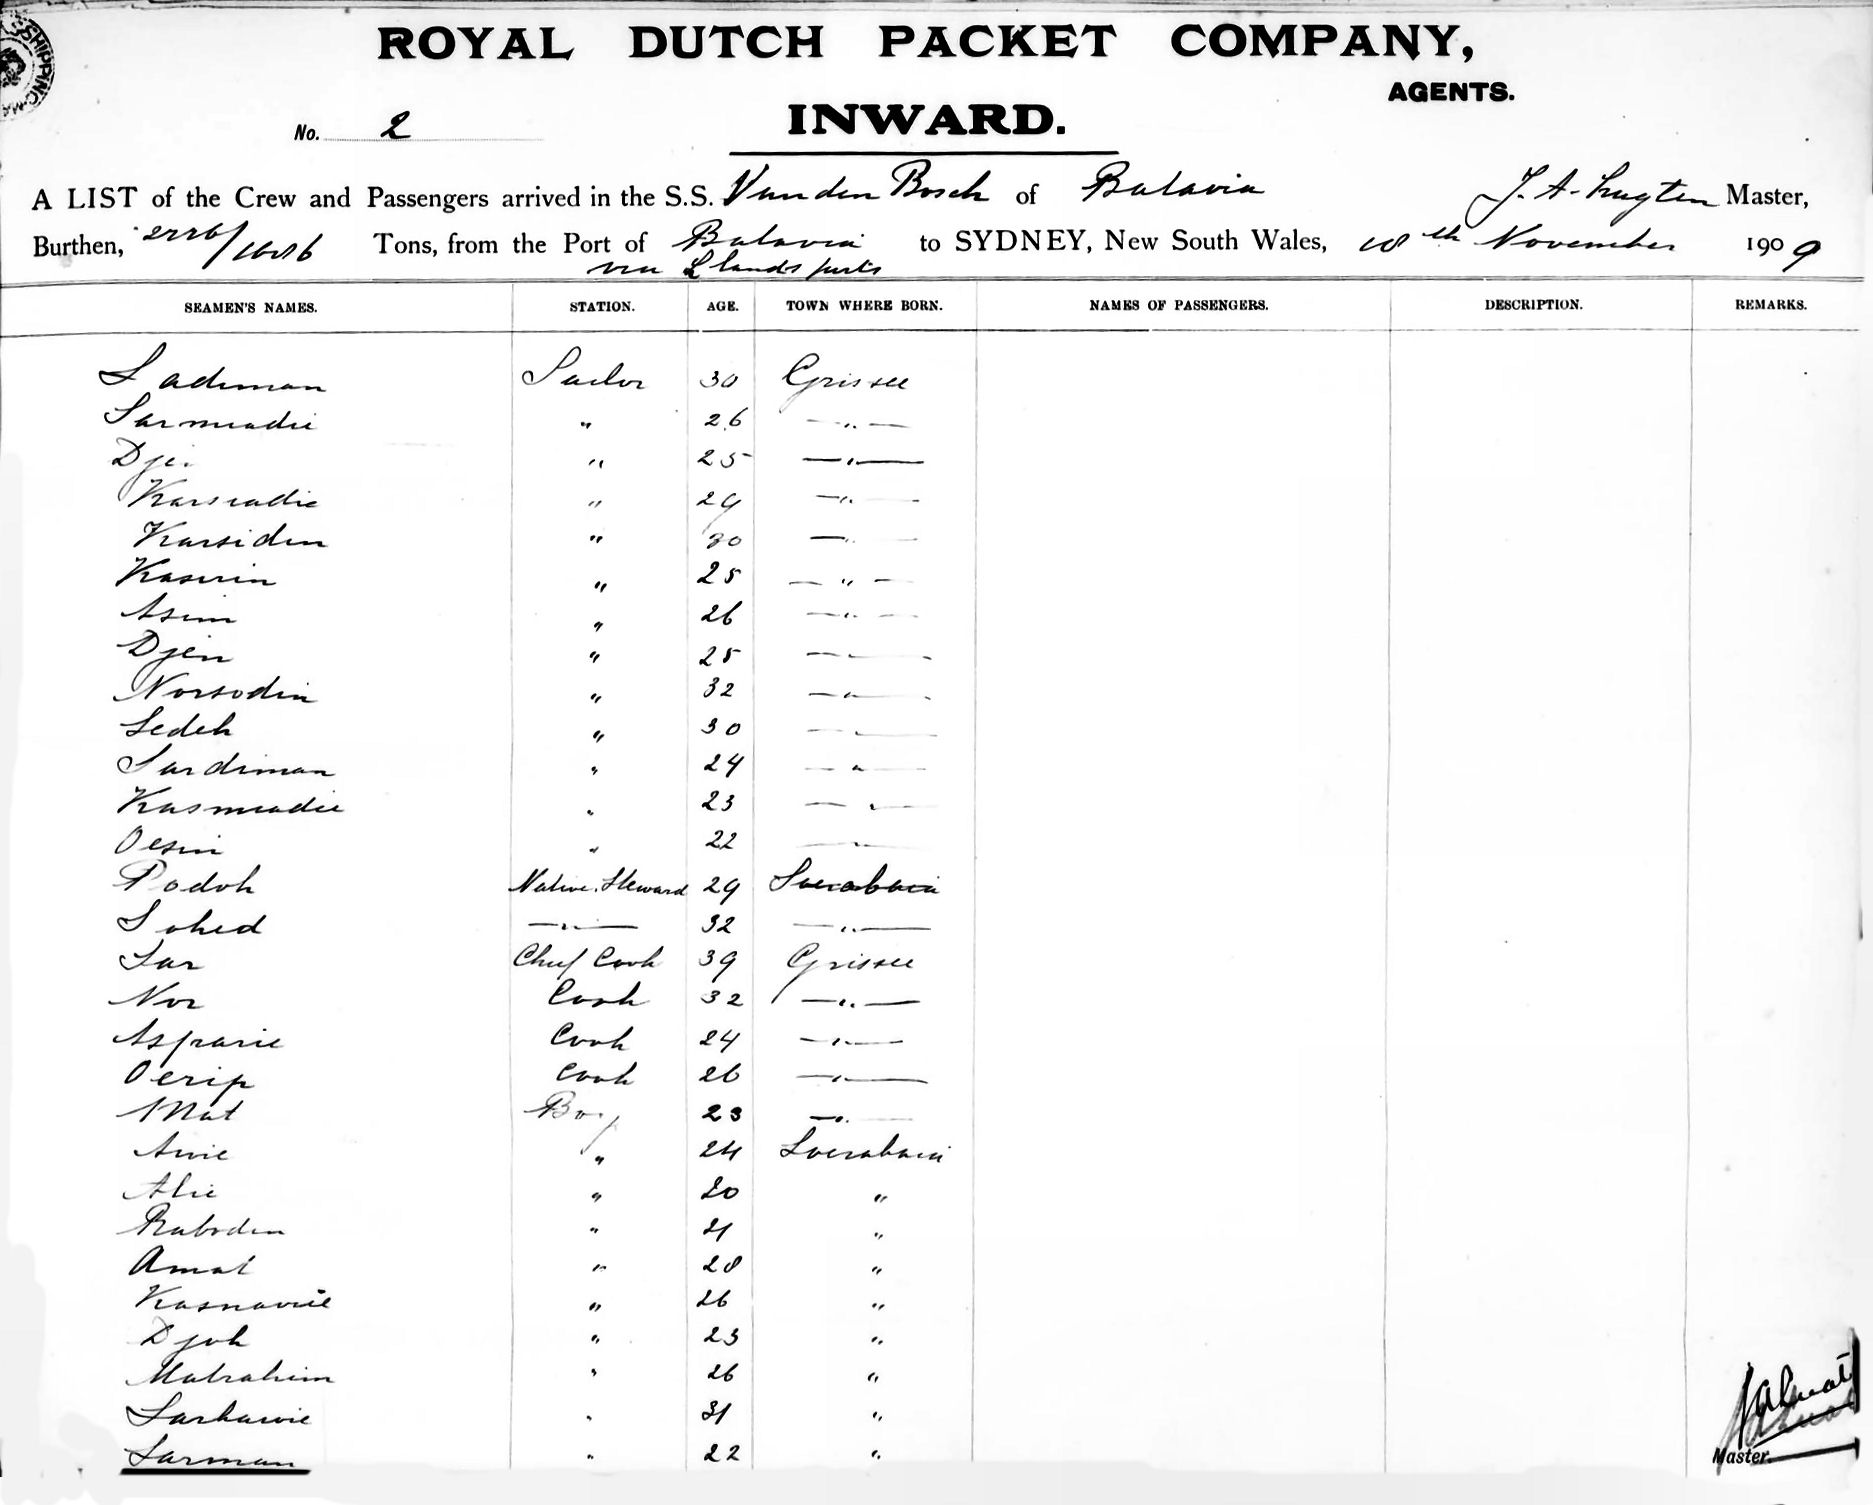 SHIPPING MA
ROYAL DUTCH PACKET COMPANY,
AGENTS.
No. 2 INWARD.
A LIST of the Crew and Passengers arrived in the S.S. Van den Bosch of Batavia J. A. Lugten Master,
Burthen, Tons, from the Port of Batavia to SYDNEY, New South Wales, 10th November 1909
via Islands ports
SEAMEN'S NAMES. STATION. AGE. TOWN WHERE BORN. NAMES OF PASSENGERS. DESCRIPTION. REMARKS.
Sadiman Sailor 30 Grissee
Sarmiadie " 26 —"—
Djei " 25 —"—
Karsiadie " 29 —"—
Karsiden " 30 —"—
Kasirin " 25 —"—
Asim " 26 —"—
Djen " 25 —"—
Norsodin " 32 —"—
Sedeh " 30 —"—
Sardiman " 24 —"—
Kasmiadie " 23 —"—
Oesin " 22 —"—
Podoh Native Steward 29 Soerabaia
Sohed —"— 32 —"—
Sar Chief Cook 39 Grissee
Nor Cook 32 —"—
Asparie Cook 24 —"—
Oerip Cook 26 —"—
Mat Boy 23 —"—
Awie " 24 Soerabaia
Alie " 20 "
Rabodin " 21 "
Amat " 28 "
Kasnawie " 26 "
Djoh " 23 "
Matrahim " 26 "
Sarkawie " 31 "
Sarman " 22 "
Master.